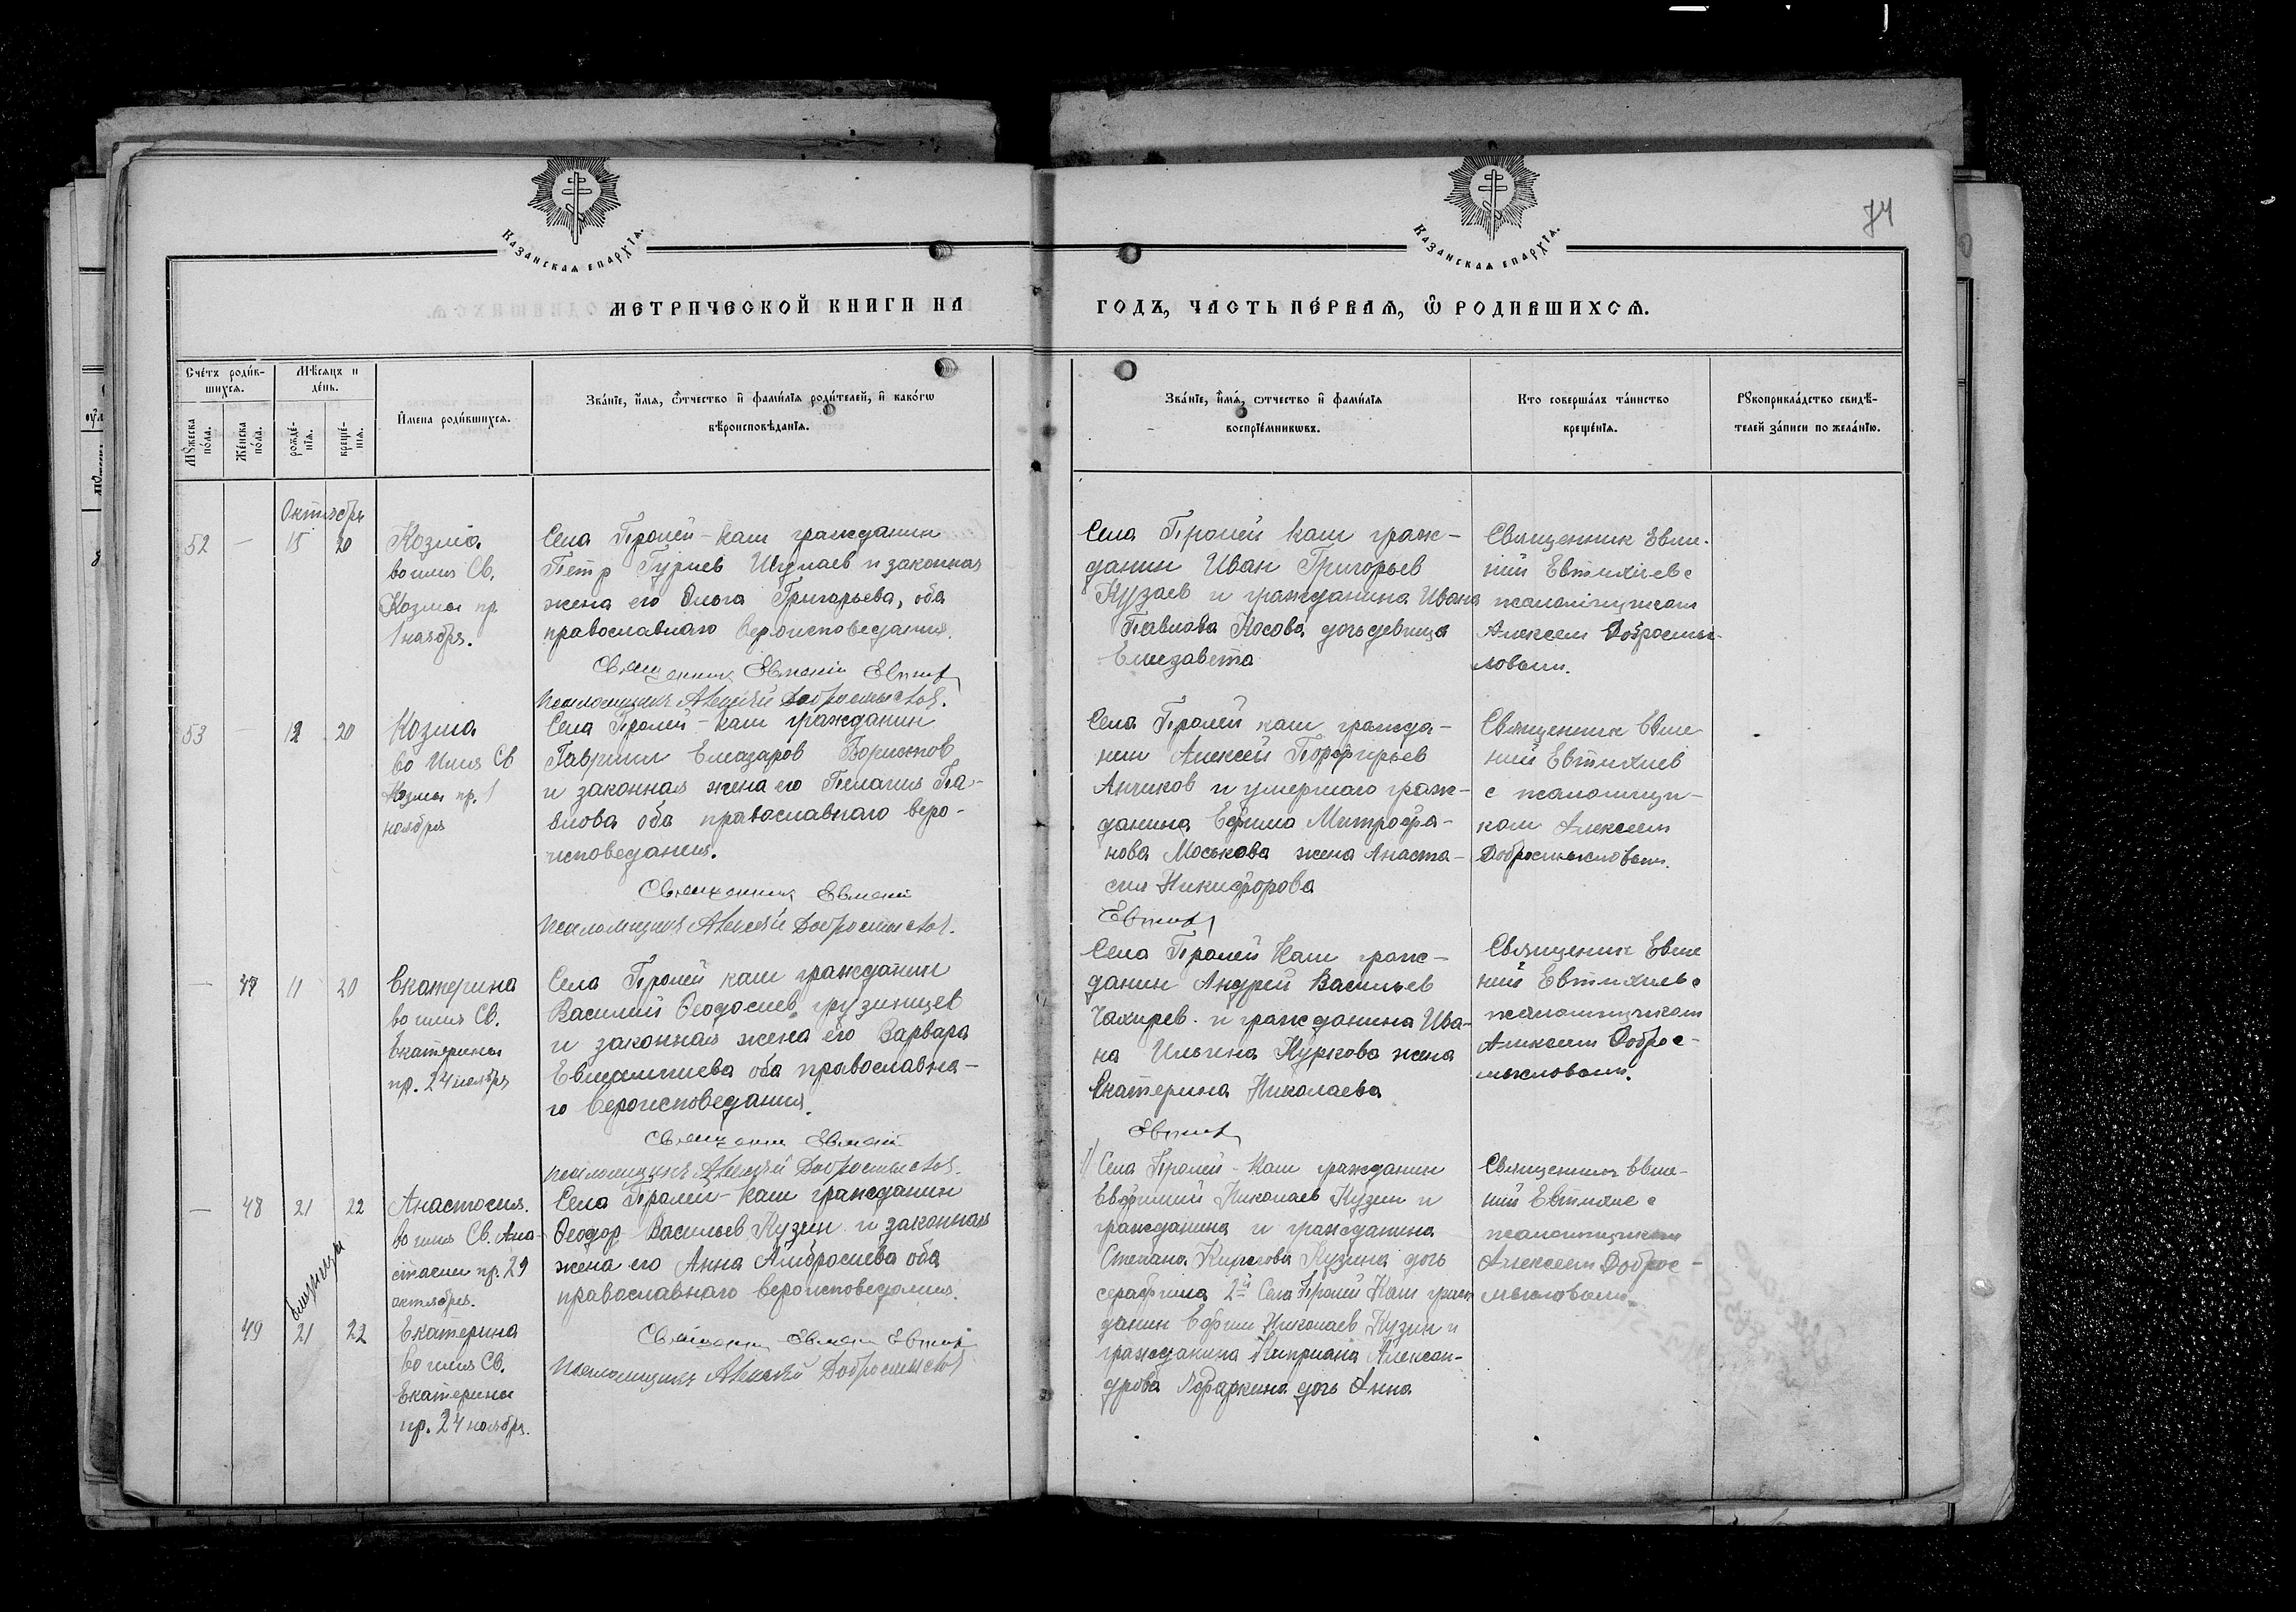 74
Казанская епархїя.
Казанская епархїя.
МЕТРИЧЕСКОЙ КНИГИ НА
ГОДЪ, ЧАСТЬ ПЕ́РВАЯ, Ѡ РОДИВШИХСЯ.
Сче́тъ роди́в-
шихся.
Мѣ́сяцъ и
де́нь.
Мꙋ́жеска
по́ла.
Же́нска
по́ла.
рожде́-
нїя.
креще́-
нїя.
И҆мена роди́вшихся.
Зва́нїе, и҆́мя, ѻ҆́тчество и҆ фами́лїя роди́телей, и҆ како́гѡ
вѣроисповѣ́данїя.
Зва́нїе, и҆́мя, ѻ҆тчество и҆ фами́лїя
воспрїе́мникѡвъ.
Кто соверша́лъ та́инство
креще́нїя.
Рꙋкоприкла́дство свидѣ́-
телей за́писи по жела́нїю.
Октябрь
52 — 15 20
Козма
во имя Св.
Козмы пр
1 ноября.
Села Пролей-Каш гражданин
Петр Гуриев и законная
жена его Ольга Григорьева, оба
православнаго вероисповедания.
Священник Евмений Евтих
Псаломщикъ Алексѣй Добросмыслов.
Села Пролей Каш граж-
данин Иван Григорьев
Кузаев и гражданина Ивана
Павлова Косова дочь девица
Елизавета
Священник Евме-
ний Евтихиев с
псаломщиком
Алексеем Добросмы-
словым.
53 — 12 20
Козма
во имя Св
Козмы пр. 1
ноября
Села Пролей-Каш гражданин
Гавриил Елиазаров
и законная жена его Пелагия Па-
влова оба православнаго веро-
исповедания.
Священник Евмений
Псаломщикъ Алексѣй Добросмыслов.
Села Пролей каш гражда-
нин Алексей Порфирьев
Анчиков и умершаго граж-
данина Ефима Митрофа-
нова Моськова жена Анаста-
сия Никифорова
Евтих
Священник Евме
ний Евтихиев
с псаломщи-
ком Алексеем
Добросмысловым.
— 47 11 20
Екатерина
во имя Св.
Екатерины
пр. 24 ноября
Села Пролей каш гражданин
Василий Феодосиев грузинцев
и законная жена его Варвара
Евлампиева оба православна-
го вероисповедания.
Священник Евмений
Псаломщикъ Алексѣй Добросмыслов.
Села Пролей Каш граж-
данин Андрей Васильев
и гражданина Ива-
на Ильина Куркова жена
Екатерина Николаева
Евтих
Священник Евме
ний Евтихиев с
псаломщиком
Алексеем Доброс-
мысловым.
— 48 21 22
близнецы
Анастасия.
во имя Св. Ана-
стасии пр. 29
октября.
Села Пролей-Каш гражданин
Феодор Васильев Кузин и законная
жена его Анна Амбросиева оба
православнаго вероисповедания.
1) Села Пролей-Каш гражданин
Евфимий Николаев Кузин и
гражданина и гражданина
Степана Кузина дочь
серафима 2й Села Пролей Каш граж
Священник Евме-
ний Евтихие с
псаломщиком
Алексеем Доброс-
мысловым.
49 21 22
Екатерина
во имя Св.
Екатерины
пр. 24 ноября.
Священник Евмений Евтих
Псаломщикъ Алексѣй Добросмыслов
данин Ефим Николаев Кузин и
гражданина Киприана Алексан-
дрова дочь Анна